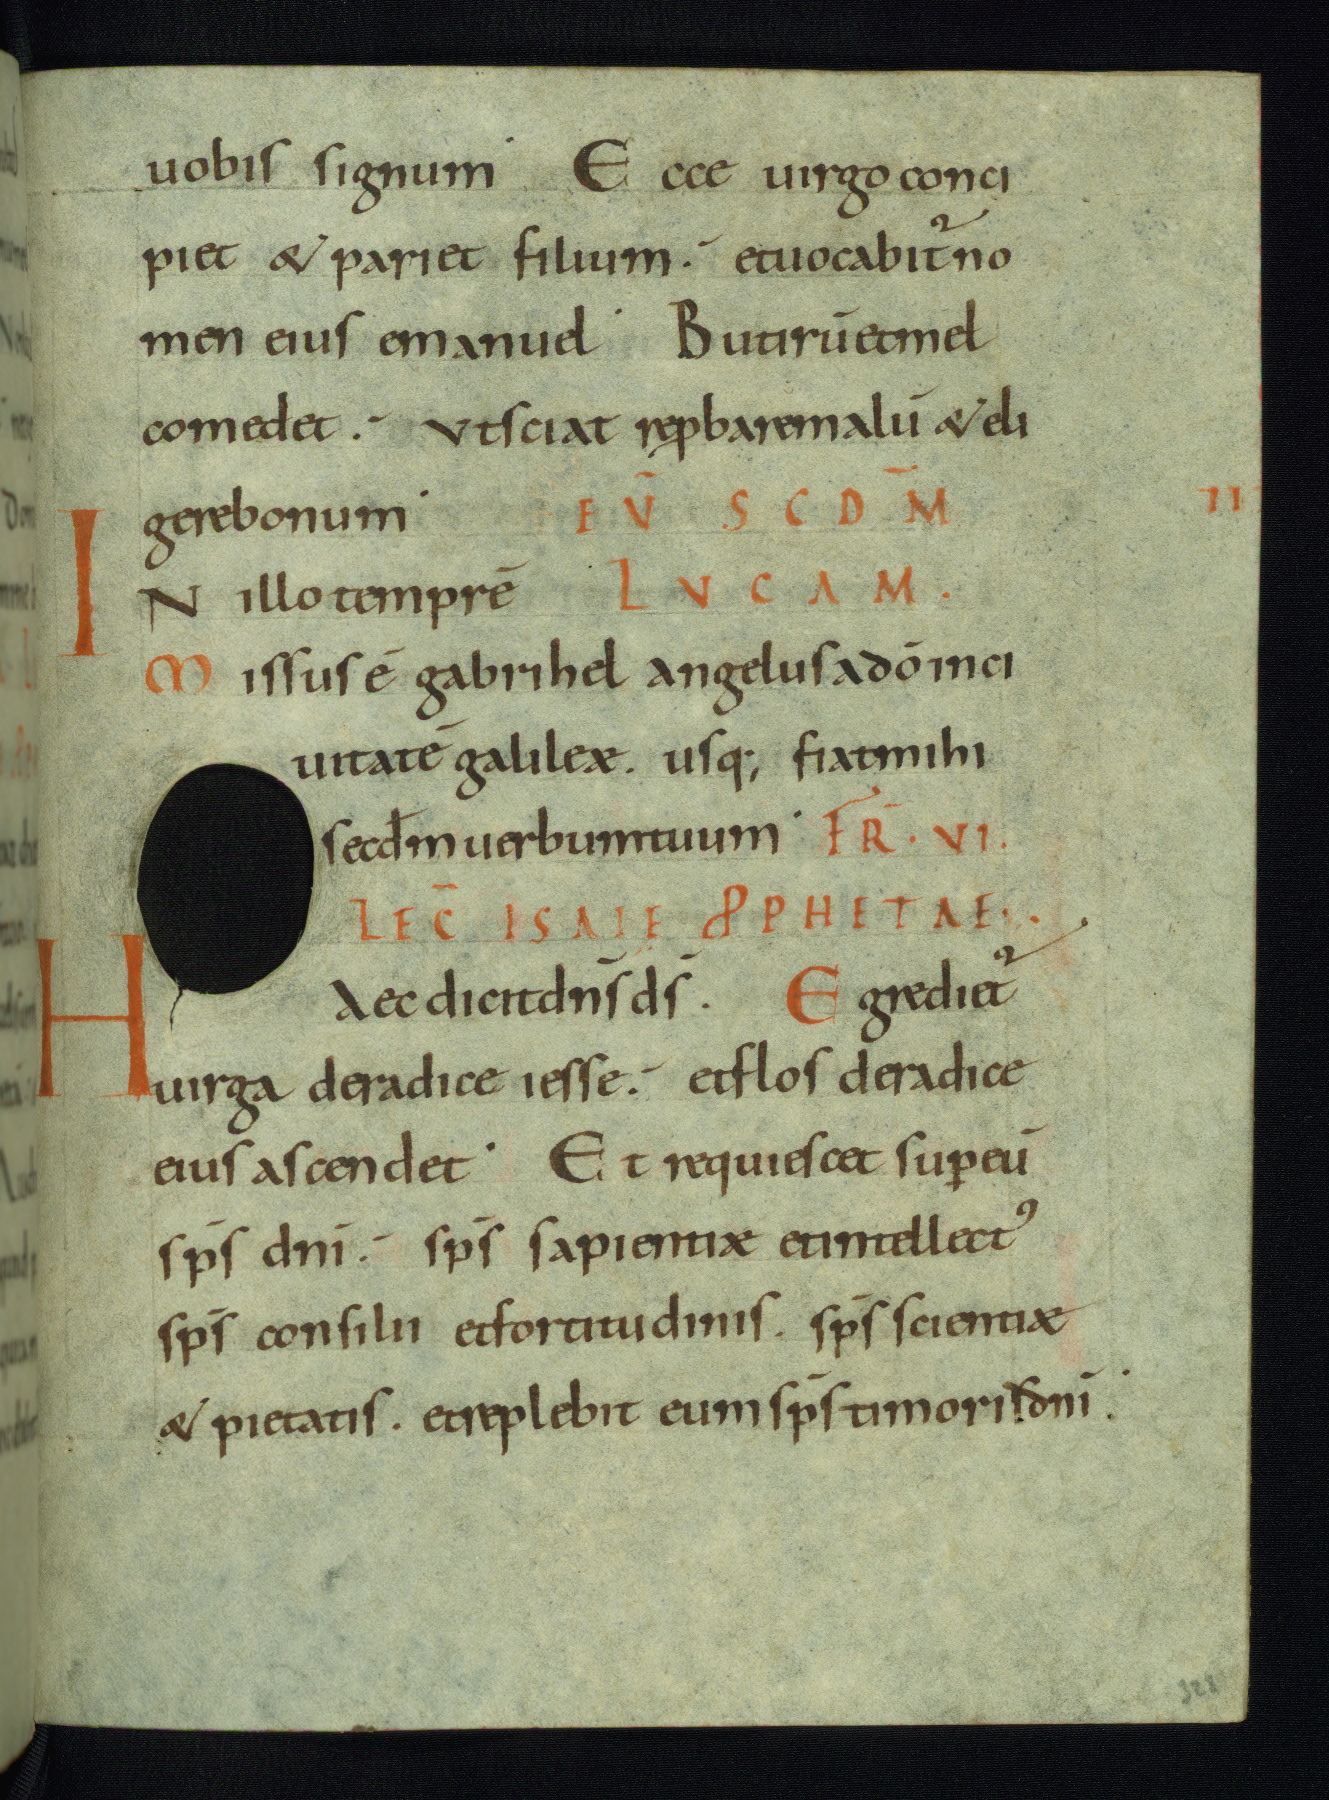 uobis signum˙ Ecce uirgo conci
piet & pariet filium. et uocabitͬ no
men eius emanuel˙ Butirū et mel
comedet. Vt sciat repbare malū & eli
gere bonum˙ EṼ SCDM̄
IN illo tempre ̄ LVCAM.
Missus ē gabrihel angelus a dō in ci
uitatē galileæ. usq; fiat mihi
secdm̄ uerbum tuum˙ FR̄. VI.
LEC̄ ISAIE PPHETAE.
HAec dicit dn̄s ds̄. Egredietͬ
uirga de radice iesse. et flos de radice
eius ascendet˙ Et requiescet sup eū
sp̄s dnī. sp̄s sapientiæ et intellectꝰ
sp̄s consilii et fortitudinis. sp̄s scientiæ
& pietatis. et replebit eum sp̄s timoris dnī.